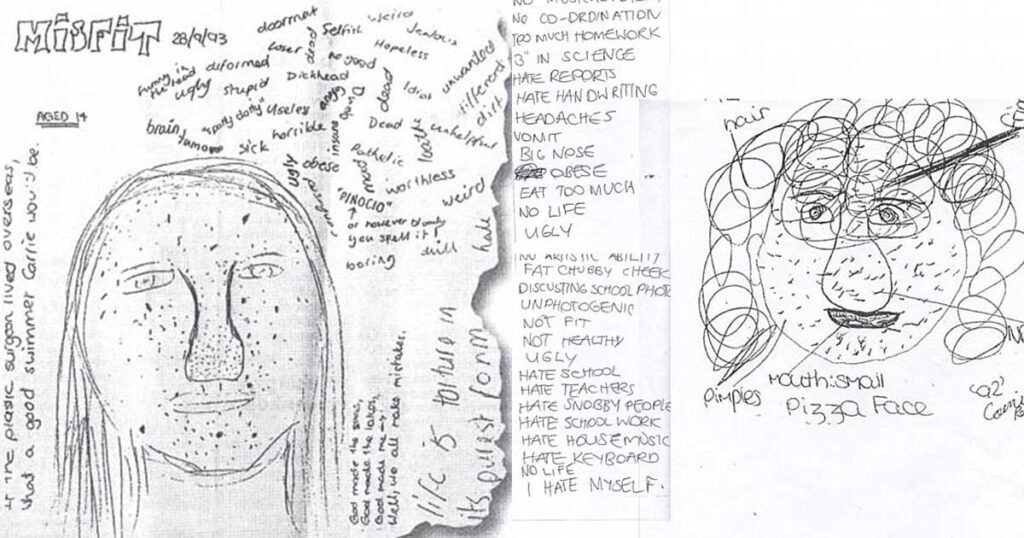 MISFIT 28/9/93
AGED 14
doormat
Selfish
weird
Jealous
Loser
dead
no good
Hopeless
unwanted
different
dirt
funny in the head
deformed
ugly
stupid
Dickhead
angry
Dumb
dead
Idiot
brain tumour
"spotty dotty"
Useless
horrible
insane
Dead
loath
unhelpful
sick
ugly
obese
mad
Pathetic
worthless
weird
"PINOCIO"
or however bloody
you spell it!
boring
dull
hate
If the plastic surgeon lived overseas,
what a good swimmer Carrie would be.
God made the sea,
God made the lakes,
God made me -
Well, we all make mistakes.
life is torture in
its purest form
NO CO-ORDINATION
TOO MUCH HOMEWORK
"3" IN SCIENCE
HATE REPORTS
HATE HANDWRITING
HEADACHES
VOMIT
BIG NOSE
OBESE
EAT TOO MUCH
NO LIFE
UGLY
NO ARTISTIC ABILITY
FAT CHUBBY CHEEK
DISCUSTING SCHOOL PHOTO
UNPHOTOGENIC
NOT FIT
NOT HEALTHY
UGLY
HATE SCHOOL
HATE TEACHERS
HATE SNOBBY PEOPLE
HATE SCHOOL WORK
HATE HOUSE MUSIC
HATE KEYBOARD
NO LIFE
I HATE MYSELF.
hair
Pimples
mouth: small
Pizza Face